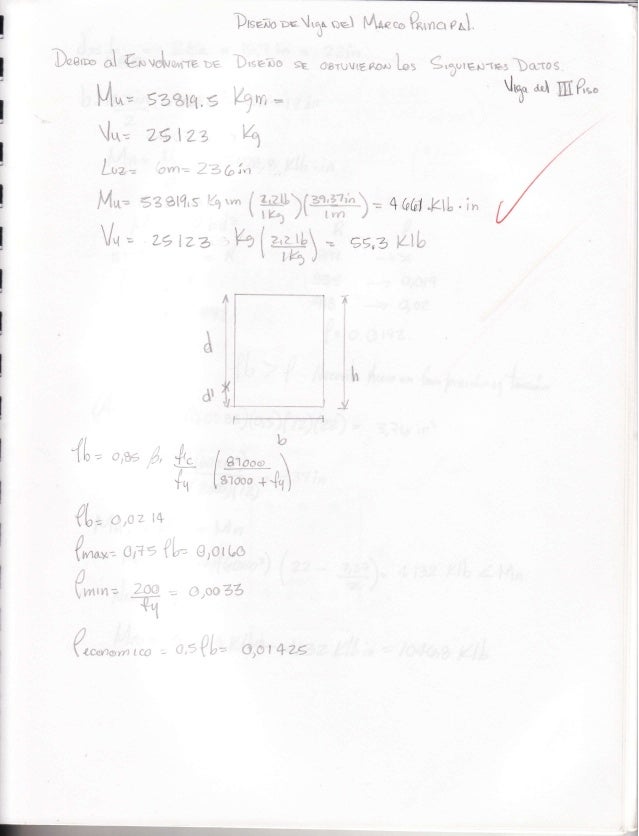 DISEÑO DE VIGA DEL MARCO PRINCIPAL.
DEBIDO al ENVOLVENTE DE DISEÑO SE OBTUVIERON Los SIGUIENTES DATOS.
Viga del III Piso
Mu= 53819.5 Kgm =
Vu= 25123 Kg
Luz= 6m= 236in
Mu= 53819.5 Kgm (2,2lb/1Kg)(39.37in/1m) = 4661.Klb.in
Vu= 25123 Kg (2,2lb/1Kg) = 55.3 Klb
d
h
d'
b
ρb= 0,85 β1 f'c/fy (87000/87000+fy)
ρb= 0,0214
ρmax= 0,75 ρb= 0,0160
ρmin= 200/fy = 0,0033
ρeconomico = 0.5ρb= 0,01425